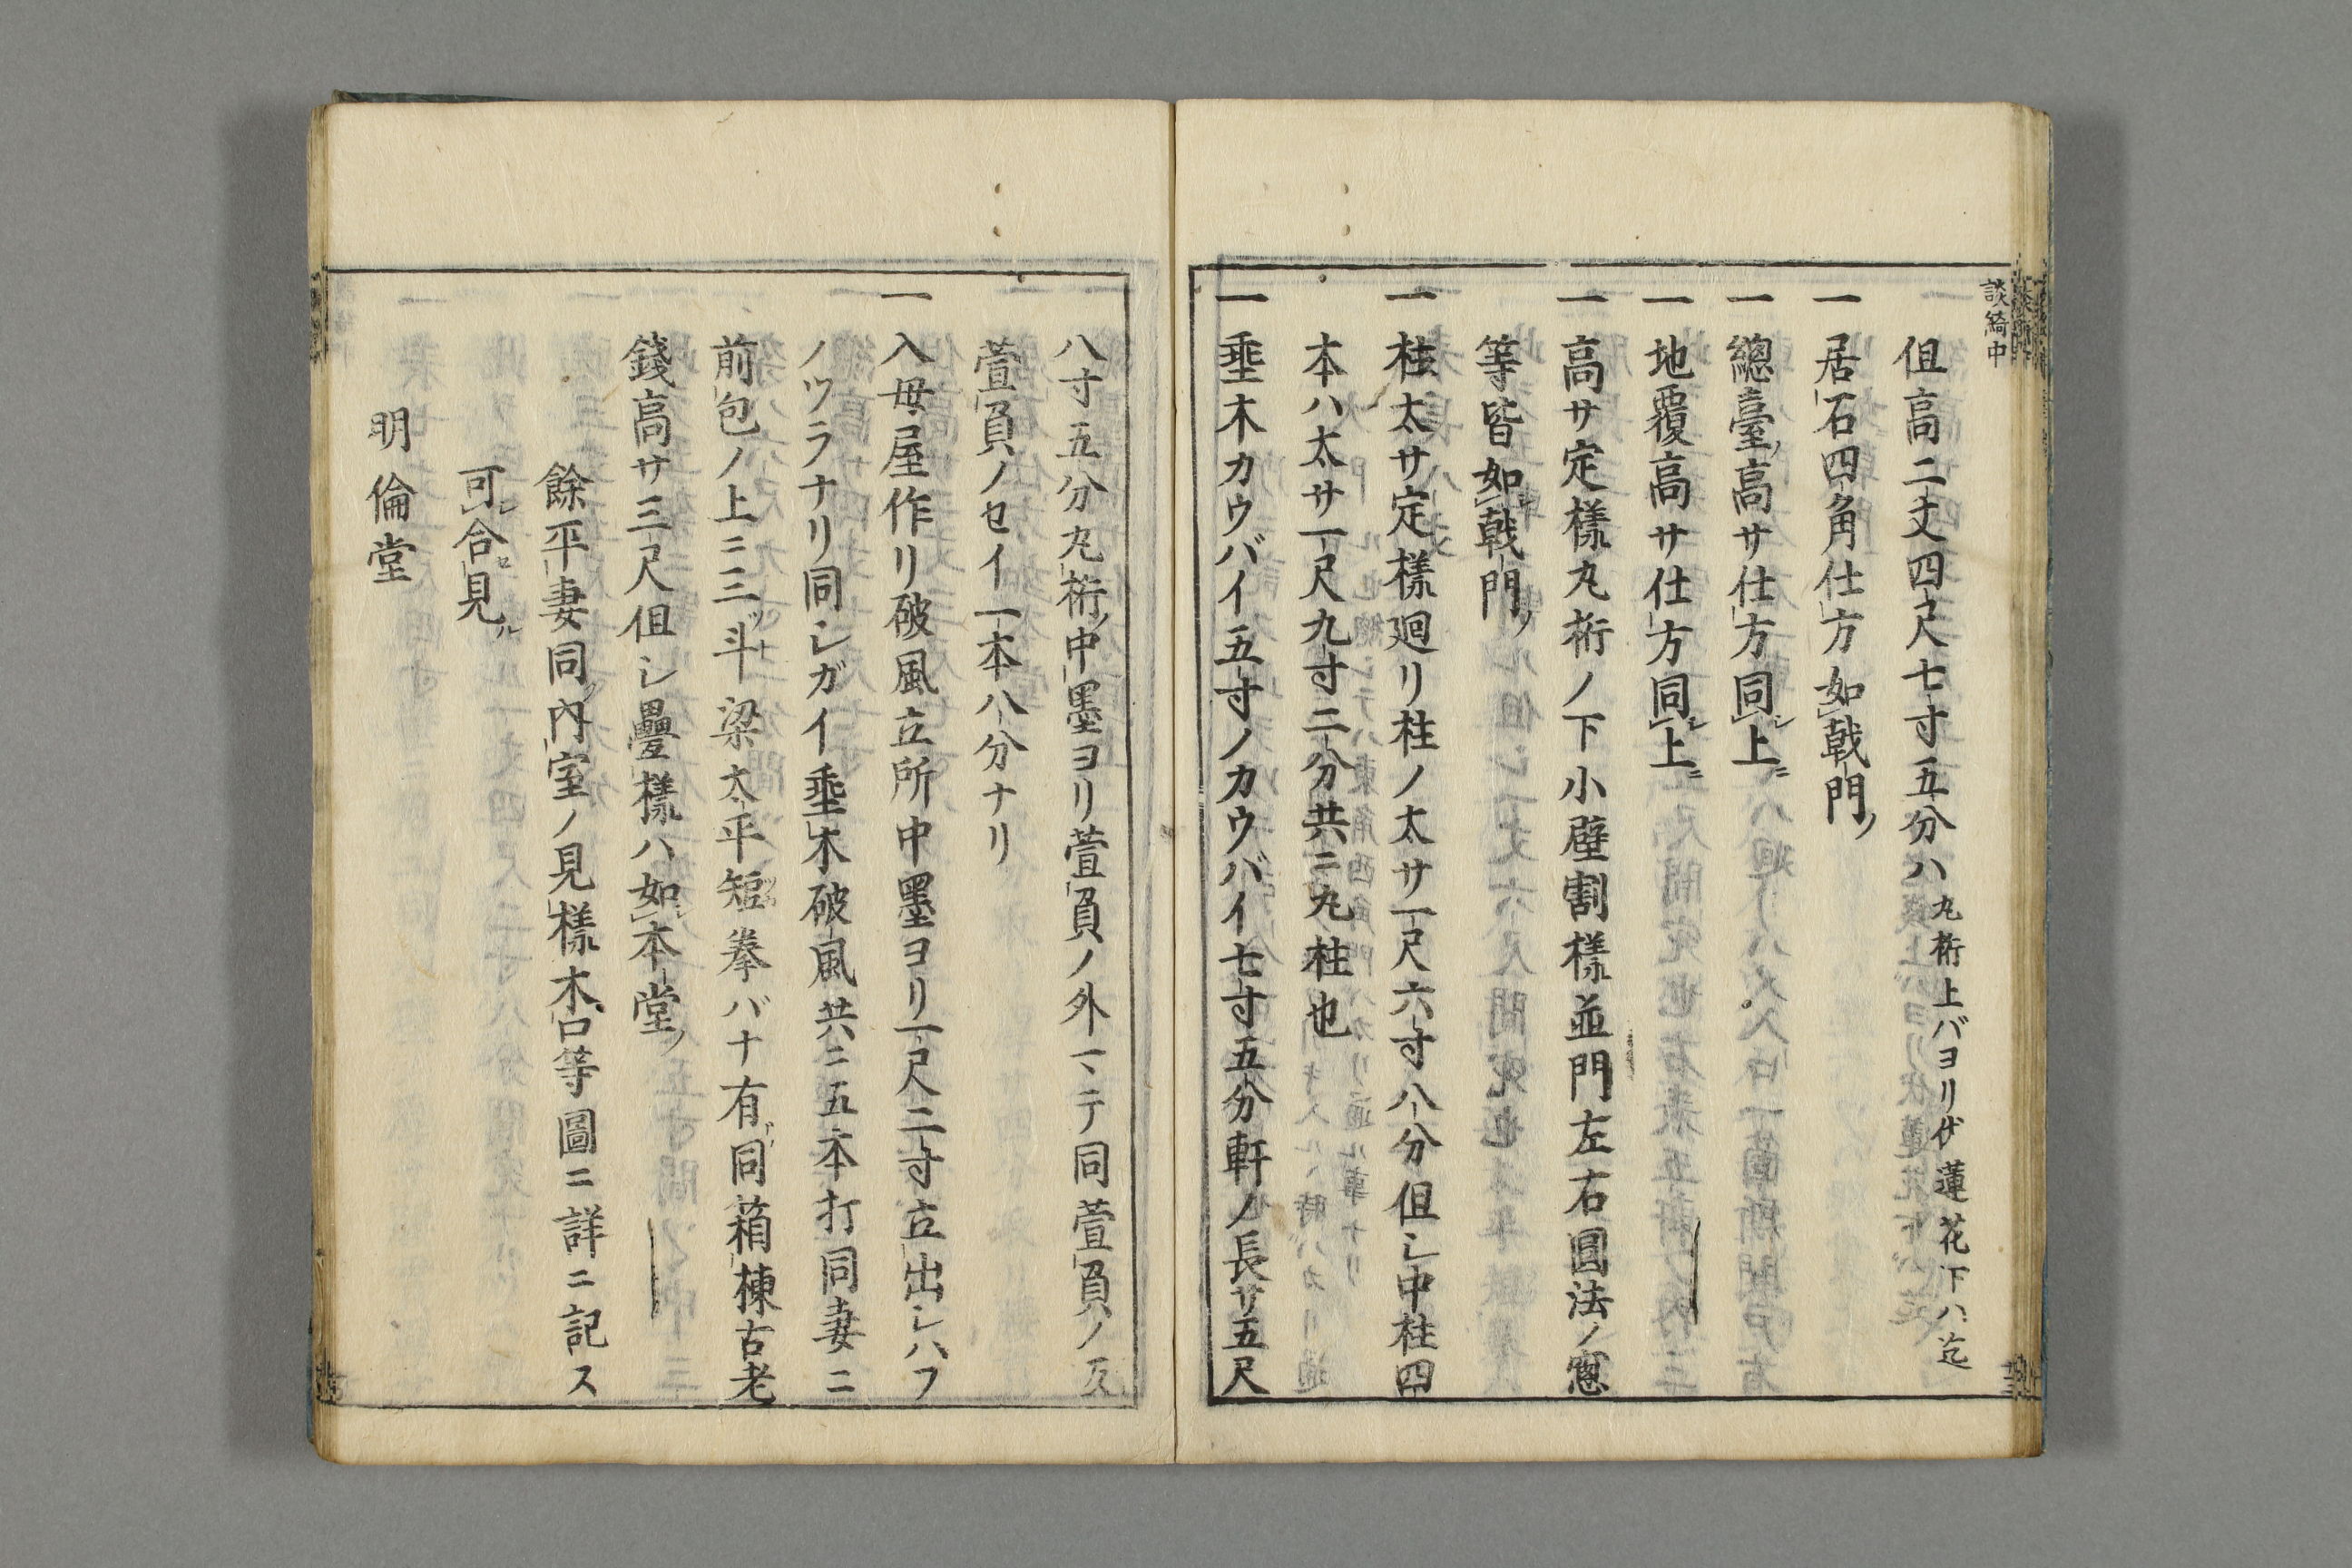 談綺中
但高二丈四尺七寸五分ハ丸桁上バヨリ伏蓮花下バ迄
一居石四角仕方如戟門ノ
一總臺ノ高サ仕方同シ上ニ
一地覆高サ仕方同シ上ニ
一高サ定樣丸桁ノ下小壁割樣並門左右圓法ノ窓
等皆如戟門ノ
一柱太サ定樣廻リ柱ノ太サ一尺六寸八分但シ中柱四
本ハ太サ一尺九寸二分共ニ丸柱也
一埀木カウバイ五寸ノカウバイ七寸五分軒ノ長サ五尺
八寸五分丸桁ノ中墨ヨリ萱負ノ外マテ同萱負ノ反
萱負ノセイ一本八分ナリ
一入母屋作リ破風立所中墨ヨリ一尺二寸立出シハフ
ノツラナリ同シガイ埀木破風共ニ五本打同妻ニ
前包ノ上ニ三ツ斗梁太平短拳バナ有同箱棟古老
錢高サ三尺但シ疊樣ハ如本堂ノ
餘平妻同ノ內室ノ見樣木口等圖ニ詳ニ記ス
可シ合ロ見ル
明倫堂